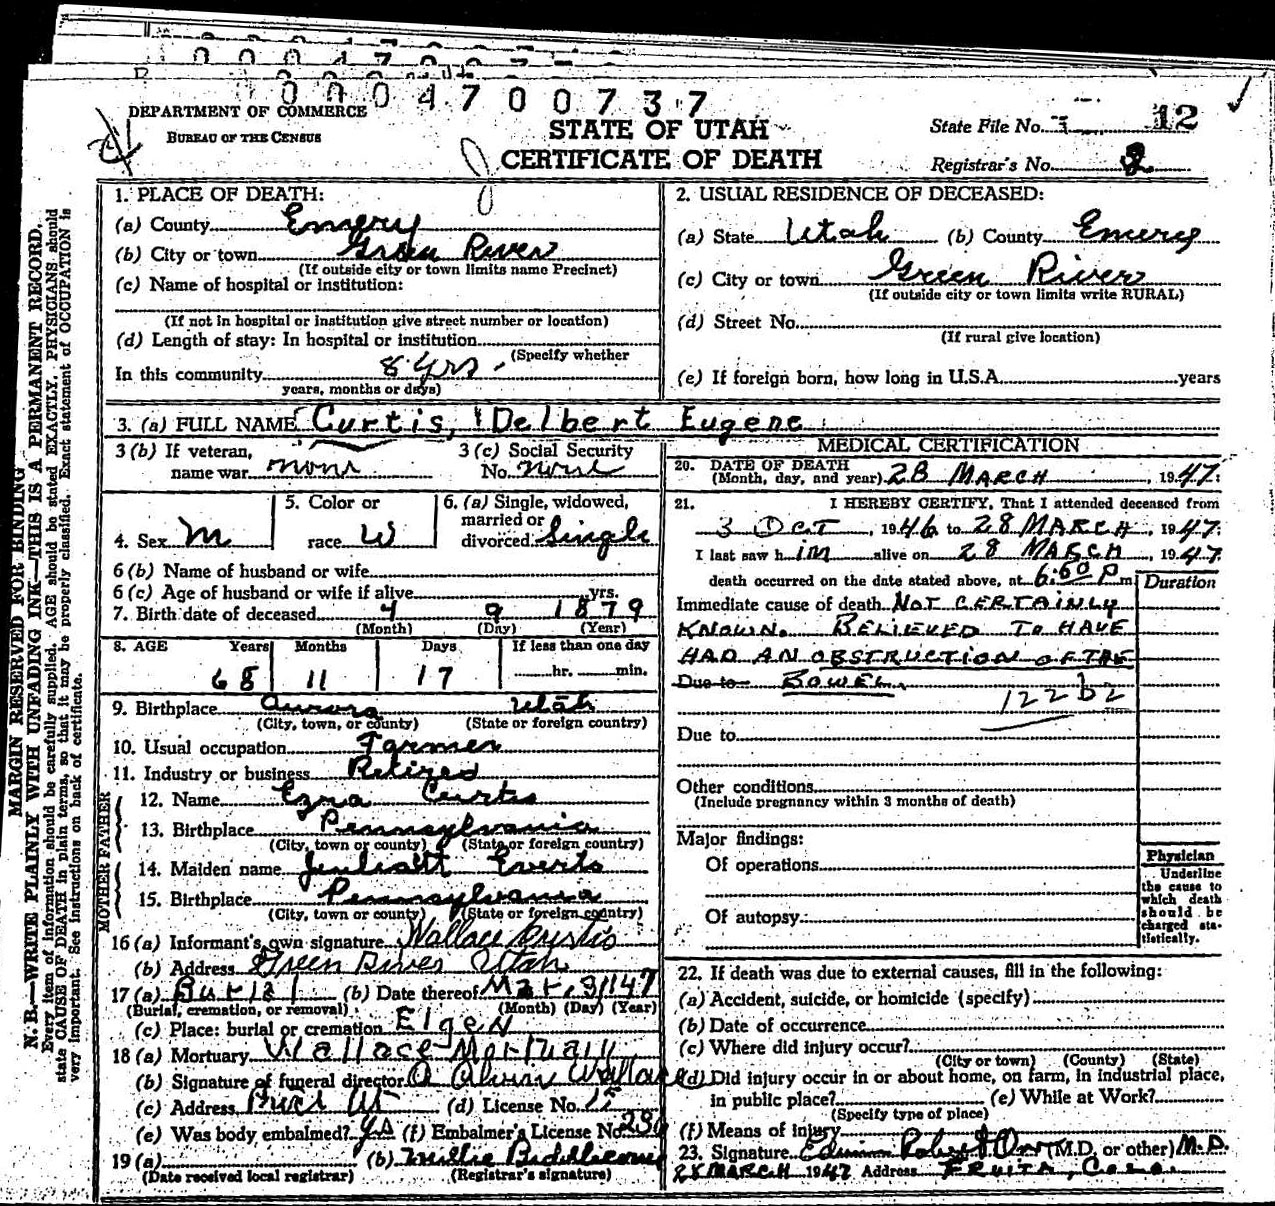 0004700737
DEPARTMENT OF COMMERCE
BUREAU OF THE CENSUS
STATE OF UTAH
CERTIFICATE OF DEATH
State File No. 12
Registrar's No. 2
MARGIN RESERVED FOR BINDING
N. B.—WRITE PLAINLY WITH UNFADING INK—THIS IS A PERMANENT RECORD.
Every item of information should be carefully supplied. AGE should be stated EXACTLY. PHYSICIANS should
state CAUSE OF DEATH in plain terms, so that it may be properly classified. Exact statement of OCCUPATION is
very important. See instructions on back of certificate.
1. PLACE OF DEATH:
(a) County Emery
(b) City or town Green River
(If outside city or town limits name Precinct)
(c) Name of hospital or institution:
(If not in hospital or institution give street number or location)
(d) Length of stay: In hospital or institution
(Specify whether
In this community 8 yrs.
years, months or days)
2. USUAL RESIDENCE OF DECEASED:
(a) State Utah (b) County Emery
(c) City or town Green River
(If outside city or town limits write RURAL)
(d) Street No.
(If rural give location)
(e) If foreign born, how long in U.S.A. years
3. (a) FULL NAME Curtis, Delbert Eugene
3 (b) If veteran, name war none
3 (c) Social Security No. none
4. Sex M
5. Color or race W
6. (a) Single, widowed, married or divorced Single
6 (b) Name of husband or wife
6 (c) Age of husband or wife if alive yrs.
7. Birth date of deceased 4 9 1879
(Month) (Day) (Year)
8. AGE Years Months Days If less than one day
68 11 17 hr. min.
9. Birthplace Aurora Utah
(City, town, or county) (State or foreign country)
10. Usual occupation Farmer
11. Industry or business Retired
FATHER
12. Name Ezra Curtis
13. Birthplace Pennsylvania
(City, town or county) (State or foreign country)
MOTHER
14. Maiden name Everts
15. Birthplace Pennsylvania
(City, town or county) (State or foreign country)
16 (a) Informant's own signature Wallace Curtis
(b) Address Green River Utah
17 (a) Burial (b) Date thereof Mar, 31 1947
(Burial, cremation, or removal) (Month) (Day) (Year)
(c) Place: burial or cremation Elgen
18 (a) Mortuary Wallace Mortuary
(b) Signature of funeral director Wallace
(c) Address Ut (d) License No.
(e) Was body embalmed? yes (f) Embalmer's License No.
19 (a) (b) Millie
(Date received local registrar) (Registrar's signature)
MEDICAL CERTIFICATION
20. DATE OF DEATH
(Month, day, and year) 28 MARCH, 1947.
21. I HEREBY CERTIFY, That I attended deceased from
3 OCT, 1946 to 28 MARCH, 1947.
I last saw him alive on 28 MARCH, 1947
death occurred on the date stated above, at P m
Duration
Immediate cause of death NOT CERTAINLY
KNOWN. BELIEVED TO HAVE
HAD AN OBSTRUCTION OF THE
Due to BOWEL.
122b2
Due to
Other conditions
(Include pregnancy within 3 months of death)
Major findings:
Of operations
Of autopsy
Physician
Underline
the cause to
which death
should be
charged sta-
tistically.
22. If death was due to external causes, fill in the following:
(a) Accident, suicide, or homicide (specify)
(b) Date of occurrence
(c) Where did injury occur?
(City or town) (County) (State)
(d) Did injury occur in or about home, on farm, in industrial place,
in public place? (e) While at Work?
(Specify type of place)
(f) Means of injury
23. Signature Robert Orr (M.D. or other) M.D.
28 MARCH 1947 Address FRUITA, COLO.